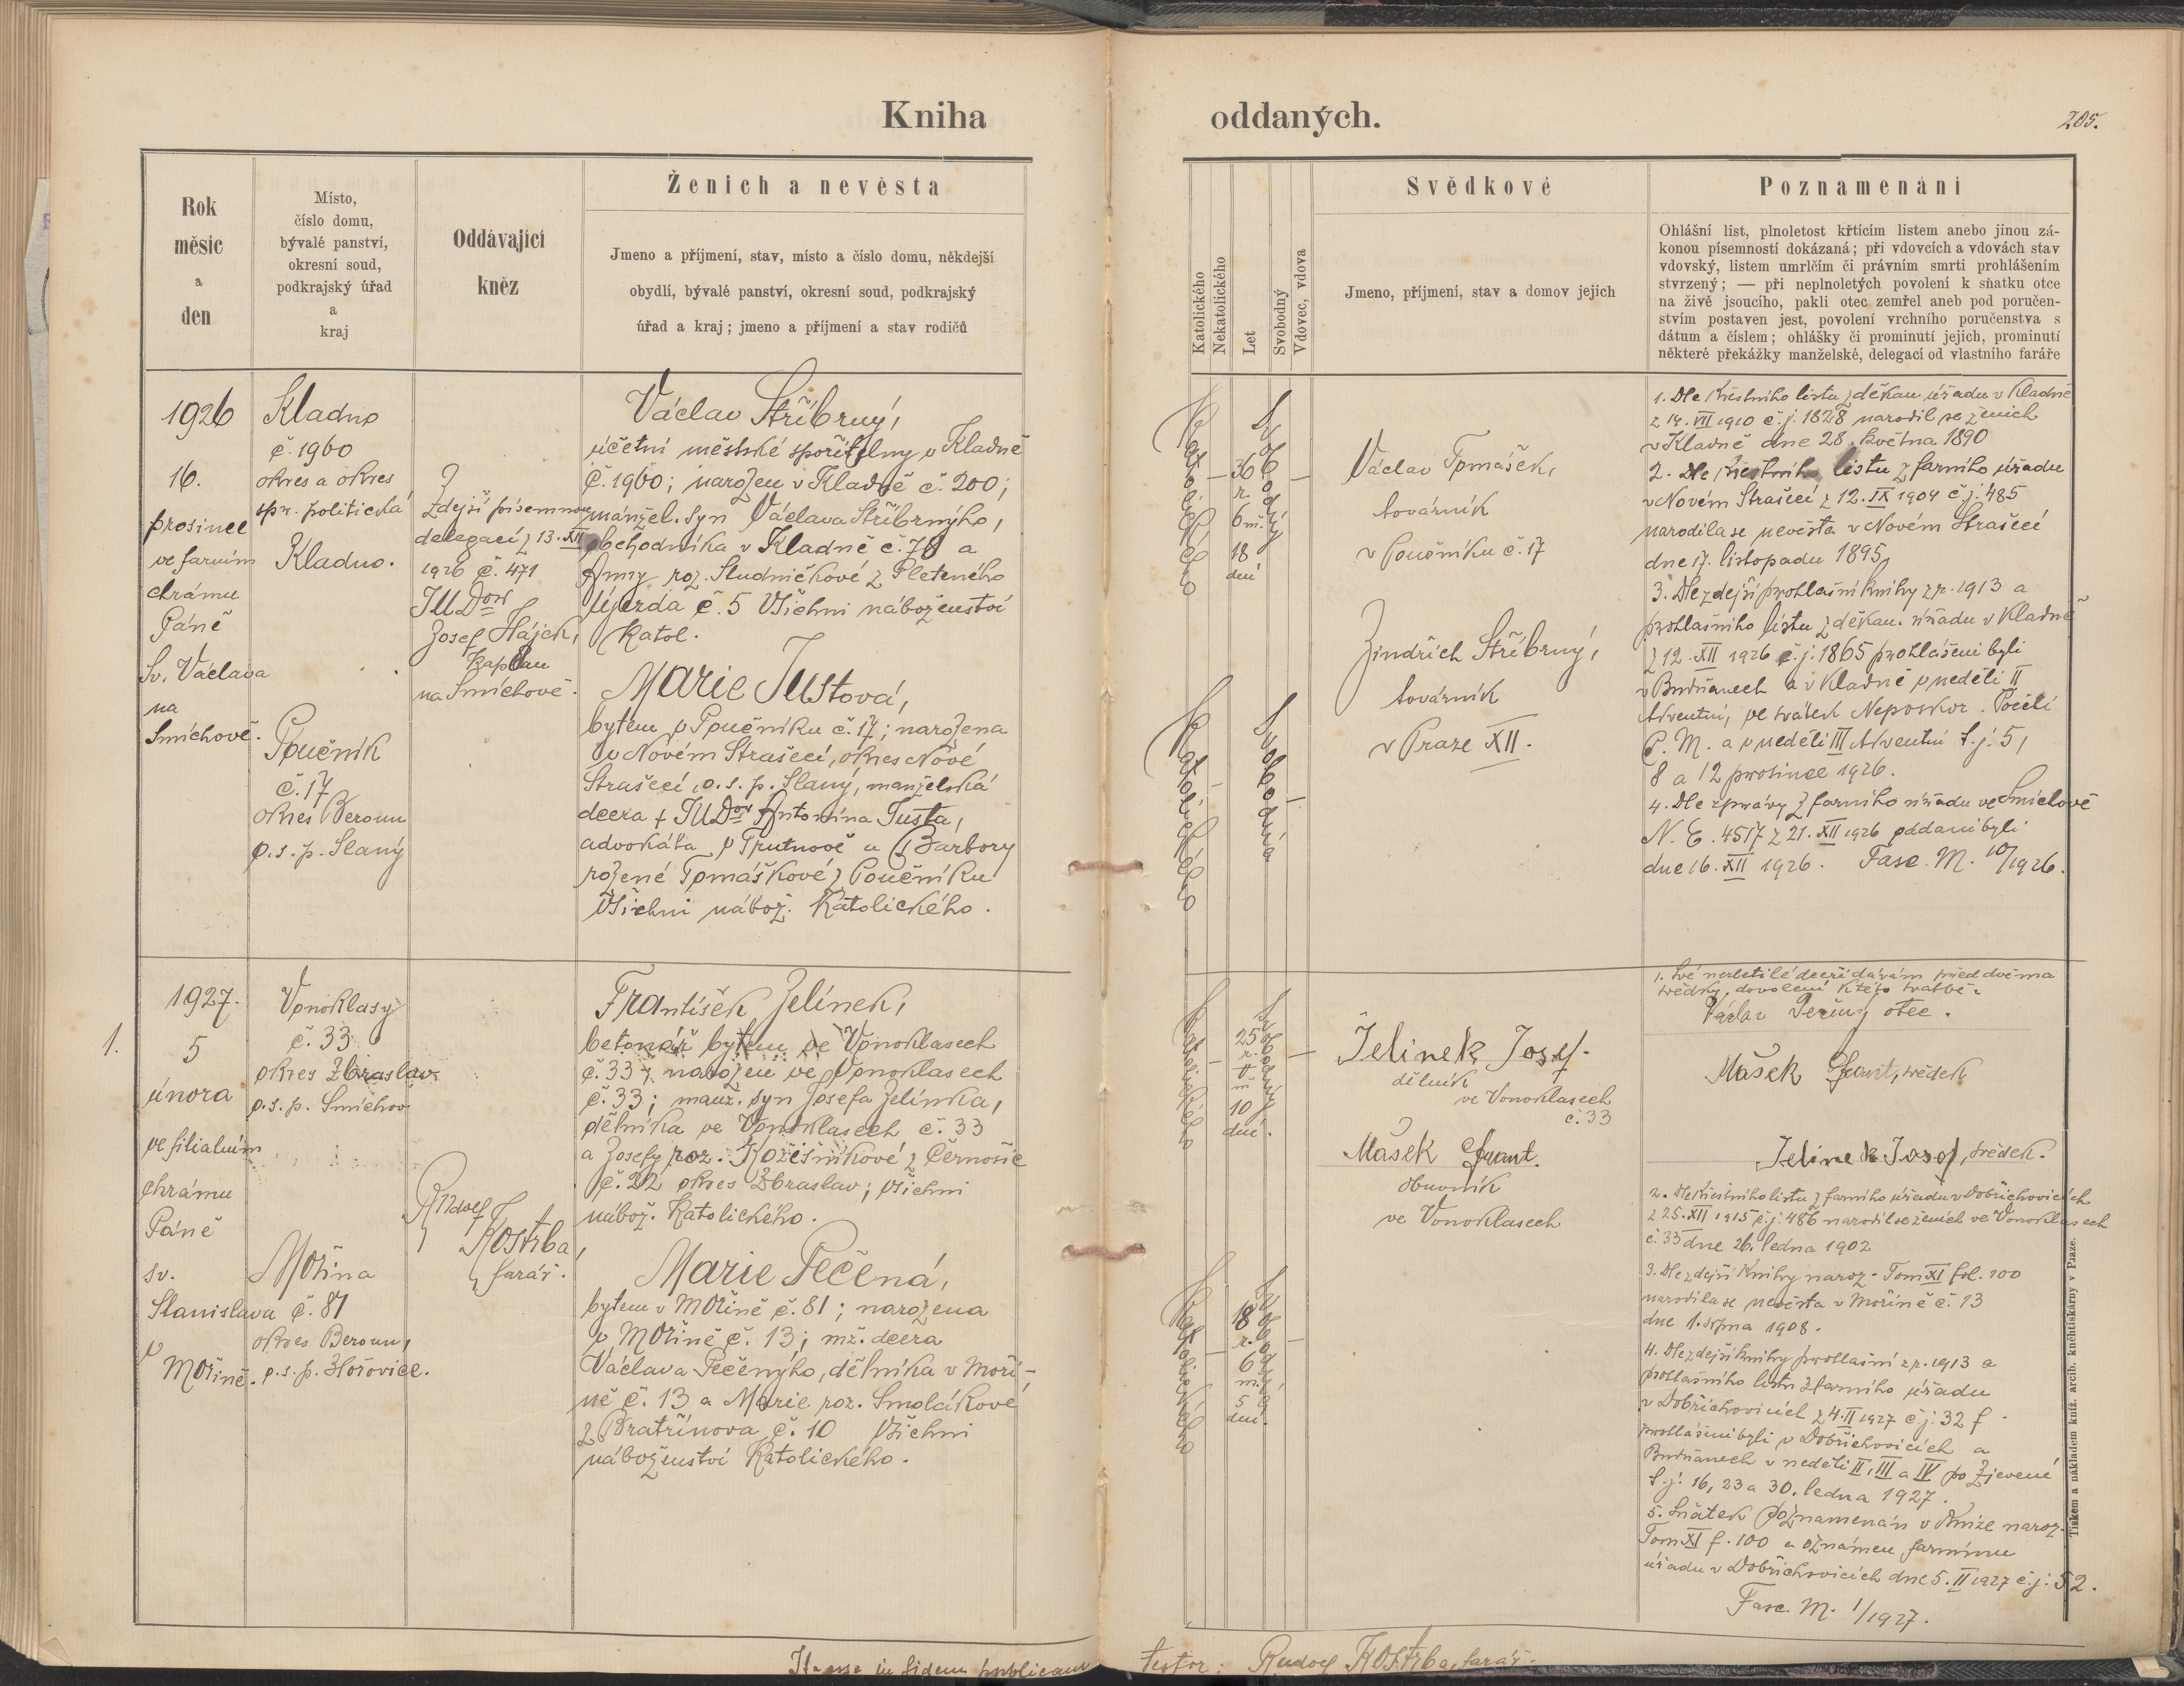 Kniha oddaných.
205.
Rok
měsíc
a
den
Místo,
číslo domu,
bývalé panství,
okresní soud,
podkrajský úřad
a
kraj
Oddávající
kněz
Ženich a nevěsta
Jmeno a příjmení, stav, místo a číslo domu, někdejší
obydlí, bývalé panství, okresní soud, podkrajský
úřad a kraj; jmeno a příjmení a stav rodičů
Katolického
Nekatolického
Let
Svobodný
Vdovec, vdova
Svědkové
Jmeno, příjmení, stav a domov jejich
Poznamenání
Ohlášní list, plnoletost křticím listem anebo jinou zá-
konou písemností dokázaná; při vdovcích a vdovách stav
vdovský, listem umrlčím či právním smrti prohlášením
stvrzený; — při neplnoletých povolení k sňatku otce
na živě jsoucího, pakli otec zemřel aneb pod poručen-
stvím postaven jest, povolení vrchního poručenstva s
dátum a číslem; ohlášky či prominutí jejich, prominutí
některé překážky manželské, delegací od vlastního faráře
1926
16.
prosince
ve farním
chrámu
Páně
Sv. Václava
na
Smíchově.
Kladno
č. 1960
okres a okres
spr. politická
Kladno.
Poučník
č. 17
okres Beroun
o.s.p. Slaný
Zdejší písemnou
delegací z 13. XII
1926 č. 471
JUDor
Josef Hájek,
kaplan
na Smíchově.
Václav Stříbrný,
účetní městské spořitelny v Kladně
č. 1960; narozen v Kladně č. 200;
manžel. syn Václava Stříbrnýho,
obchodníka v Kladně č. 78 a
Anny roz. Studničkové z Pleteného
Újezda č. 5 Všichni náboženství
katol.
Marie Justová,
bytem v Poučníku č. 17; narozena
v Novém Strašecí, okres Nové
Strašecí, o.s.p. Slaný, manželská
dcera + JUDor Antonína Justa,
advokáta v Trutnově a Barbory
rozené Tomáškové z Poučníku
Všichni nábož. katolického.
Katolického
36
r.
6 m.
18
dní
Svobodný
Katolického
Svobodná
Václav Tomášek,
továrník
v Poučníku č. 17
Jindřich Stříbrný,
továrník
v Praze XII.
1. Dle křestního listu z děkan. úřadu v Kladně
z 14. VII 1910 č.j. 1828 narodil se ženich
v Kladně dne 28. května 1890
2. Dle křestního listu z farního úřadu
v Novém Strašecí z 12. IX 1904 č.j. 485
narodila se nevěsta v Novém Strašecí
dne 17. listopadu 1895
3. Dle zdejší prohlašní knihy z r. 1913 a
prohlašního listu z děkan. úřadu v Kladně
z 12. XII 1926 č.j. 1865 prohlášeni byli
v Budňanech a v Kladně v neděli II
Adventní, ve svátek Neposkvr. Početí
P. M. a v neděli III Adventní t.j. 5,
8 a 12 prosince 1926.
4. Dle zprávy z farního úřadu ve Smíchově
N. E. 4517 z 21. XII 1926 oddáni byli
dne 16. XII 1926. Fasc. M. 10/1926.
1.
1927.
5
února
ve filialním
chrámu
Páně
sv.
Stanislava
v
Mořině.
Vonoklasy
č. 33
okres Zbraslav
o.s.p. Smíchov
Mořina
č. 81
okres Beroun,
o.s.p. Hořovice.
Rudolf
Kostrba,
farář.
František Jelínek,
betonář bytem ve Vonoklasech
č. 33; narozen ve Vonoklasech
č. 33; manž. syn Josefa Jelínka,
dělníka ve Vonoklasech č. 33
a Josefy roz. Kožíšníkové z Černošic
č. 22 okres Zbraslav; všichni
nábož. katolického.
Marie Pečená,
bytem v Mořině č. 81; narozena
v Mořině č. 13; mž. dcera
Václava Pečenýho, dělníka v Moři-
ně č. 13 a Marie roz. Smolákové
z Bratřínova č. 10 Všichni
náboženství katolického.
Katolického
25
r.
m
10
dní.
Svobodný
Katolického
18
r.
6
m.
5
dní.
Svobodná
Jelinek Josef.
dělník
ve Vonoklasech
č. 33
Mašek Frant.
obuvník
ve Vonoklasech
1. Své nezletilé dceři dávám před dvěma
svědky dovolení k této svatbě.
Václav Pečený otec.
Mašek Frant, svědek
Jelinek Josef, svědek.
2. Dle křestního listu z farního úřadu v Dobřichovicích
z 25. XII 1915 č.j. 486 narodil se ženich ve Vonoklasech
č. 33 dne 26. ledna 1902
3. Dle zdejší knihy naroz. Tom XI fol. 100
narodila se nevěsta v Mořině č. 13
dne 1. srpna 1908.
4. Dle zdejší knihy prohlašní z r. 1913 a
prohlašního listu z farního úřadu
v Dobřichovicích z 4. II 1927 č.j. 32 f.
prohlášeni byli v Dobřichovicích a
Budňanech v neděli II, III a IV po Zjevení
t.j. 16, 23 a 30. ledna 1927.
5. Sňatek poznamenán v knize naroz.
Tom XI f. 100 a oznámen farnímu
úřadu v Dobřichovicích dne 5. II 1927 č.j. 52.
Fasc. M. 1/1927.
Tiskem a nákladem kníž. arcib. knihtiskárny v Praze.
Ita esse in fidem publicam testor: Rudolf Kostrba, farář.